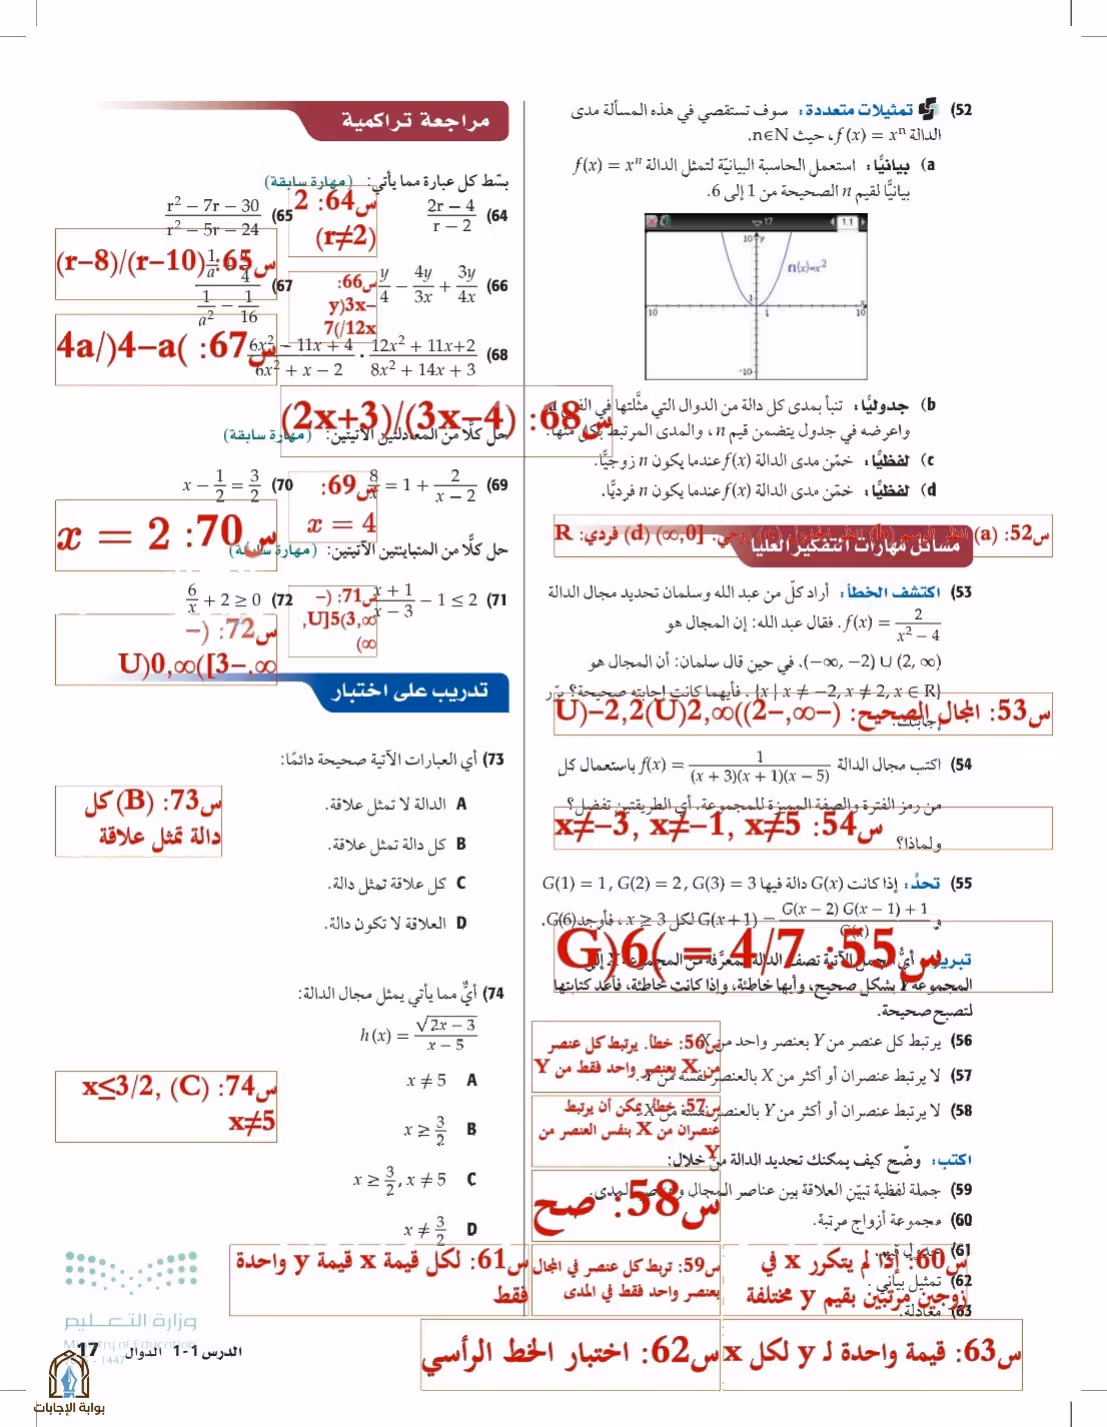 52) تمثيلات متعددة: سوف تستقصي في هذه المسألة مدى
الدالة f(x) = xⁿ، حيث n∈N.
a) بيانيًّا: استعمل الحاسبة البيانيّة لتمثل الدالة f(x) = xⁿ
بيانيًّا لقيم n الصحيحة من 1 إلى 6.
1.1 17
10 y
f1(x)=x²
1
-10 1 10 x
-10
b) جدوليًّا: تنبأ بمدى كل دالة من الدوال التي مثَّلتها في الفرع a
واعرضه في جدول يتضمن قيم n، والمدى المرتبط بكل منها.
c) لفظيًّا: خمّن مدى الدالة f(x) عندما يكون n زوجيًّا.
d) لفظيًّا: خمّن مدى الدالة f(x) عندما يكون n فرديًّا.
مسائل مهارات التفكير العليا
س52: (a) (b) (c) زوجي: [0,∞) (d) فردي: R
53) اكتشف الخطأ: أراد كلّ من عبد الله وسلمان تحديد مجال الدالة
f(x) = 2/(x² − 4). فقال عبد الله: إن المجال هو
(−∞, −2) ∪ (2, ∞). في حين قال سلمان: أن المجال هو
{x | x ≠ −2, x ≠ 2, x ∈ R}. فأيهما كانت إجابته صحيحة؟ برّر
إجابتك.
س53: المجال الصحيح: (−∞,−2)U(−2,2)U(2,∞)
54) اكتب مجال الدالة f(x) = 1/((x + 3)(x + 1)(x − 5)) باستعمال كل
من رمز الفترة والصفة المميزة للمجموعة. أي الطريقتين تفضل؟
ولماذا؟
س54: x≠−3, x≠−1, x≠5
55) تحدٍّ: إذا كانت G(x) دالة فيها G(1) = 1, G(2) = 2, G(3) = 3
و G(x + 1) = (G(x − 2) G(x − 1) + 1)/G(x) لكل x ≥ 3، فأوجد G(6).
س55: G)6( = 4/7
تبرير: أيُّ الجمل الآتية تصف الدالة المعرَّفة من المجموعة X إلى
المجموعة Y بشكل صحيح، وأيها خاطئة، وإذا كانت خاطئة، فأعد كتابتها
لتصبح صحيحة.
56) يرتبط كل عنصر من Y بعنصر واحد من X.
س56: خطأ. يرتبط كل عنصر
من X بعنصر واحد فقط من Y
57) لا يرتبط عنصران أو أكثر من X بالعنصر نفسه من Y.
س57: خطأ. يمكن أن يرتبط
عنصران من X بنفس العنصر من
Y
58) لا يرتبط عنصران أو أكثر من Y بالعنصر نفسه من X.
س58: صح
اكتب: وضّح كيف يمكنك تحديد الدالة من خلال:
59) جملة لفظية تبيّن العلاقة بين عناصر المجال وعناصر المدى.
60) مجموعة أزواج مرتبة.
61) جدول قيم.
62) تمثيل بياني.
63) معادلة.
س59: تربط كل عنصر في المجال
بعنصر واحد فقط في المدى
س60: إذا لم يتكرر x في
زوجين مرتبين بقيم y مختلفة
س61: لكل قيمة x قيمة y واحدة
فقط
س62: اختبار الخط الرأسي
س63: قيمة واحدة لـ y لكل x
مراجعة تراكمية
بسّط كل عبارة مما يأتي: (مهارة سابقة)
64) (2r − 4)/(r − 2)
س64: 2
(r≠2)
65) (r² − 7r − 30)/(r² − 5r − 24)
س65: (r−10)/(r−8)
66) y/4 − 4y/3x + 3y/4x
س66:
y)3x−
7(/12x
67) 1/a 4 / (1/a² − 1/16)
س67: 4a/)4−a(
68) (6x² − 11x + 4)/(6x² + x − 2) · (12x² + 11x+2)/(8x² + 14x + 3)
س68: (3x−4)/(2x+3)
حل كلًّا من المعادلتين الآتيتين: (مهارة سابقة)
69) 8/x = 1 + 2/(x − 2)
س69:
x = 4
70) x − 1/2 = 3/2
س70: x = 2
حل كلًّا من المتباينتين الآتيتين: (مهارة سابقة)
71) (x + 1)/(x − 3) − 1 ≤ 2
س71: (−
∞,3)U[5,
∞)
72) 6/x + 2 ≥ 0
س72: (−
∞,−3])∞,0(U
تدريب على اختبار
73) أي العبارات الآتية صحيحة دائمًا:
A الدالة لا تمثل علاقة.
B كل دالة تمثل علاقة.
C كل علاقة تمثل دالة.
D العلاقة لا تكون دالة.
س73: (B) كل
دالة تمثل علاقة
74) أيٌّ مما يأتي يمثل مجال الدالة:
h(x) = √(2x − 3)/(x − 5)
A x ≠ 5
B x ≥ 3/2
C x ≥ 3/2, x ≠ 5
D x ≠ 3/2
س74: (C) ,x≤3/2
x≠5
وزارة التعليم
Ministry of Education
1447
الدرس 1-1 الدوال 17
بوابة الإجابات